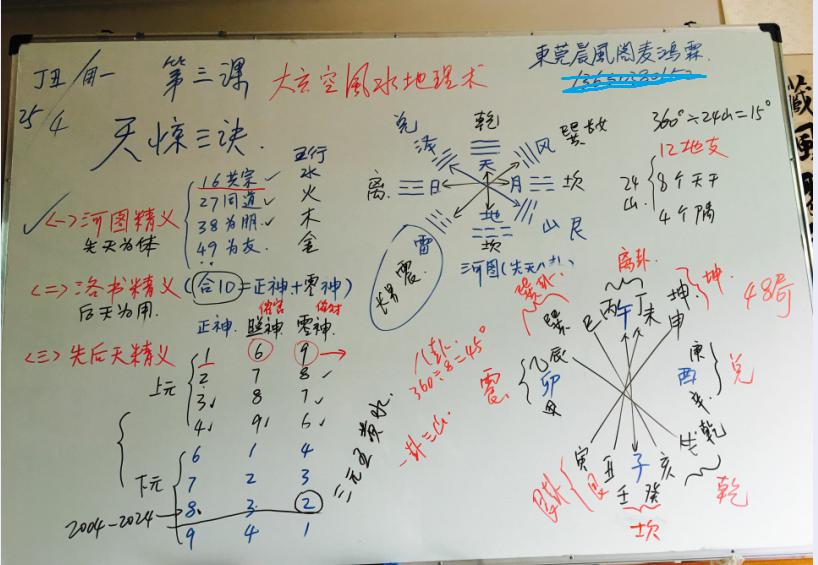 丁丑/用一 第三课 大玄空風水地理术
東莞晨風阁麦鴻霖
25/4
天惊三诀.
五行
(一)河图精义
先天为体
16共宗 水
27同道 火
38为朋 木
49为友. 金
(二)洛书精义(合10=正神+零神)
后天为用.
正神. 照神 零神.
(三)先后天精义
上元
1 6 9
2 7 8
3 8 7
4 9 6
下元
6 1 4
7 2 3
8 3 2
9 4 1
2004-2024
兑 乾
泽 天 风
离 日 月 坎
雷 地 山 艮
坎
震
河图(先天八卦)
360°÷24山=15°
24山
12地支
8个天干
4个隅
八卦
360÷8=45°
一卦三山.
离卦
巽卦
坤
巽 巳 丙 午 丁 未 坤 申
乙 辰 卯
庚 酉 辛
兑
震
寅 丑 子 亥
壬 癸
乾
艮卦
坎
48局
藏風